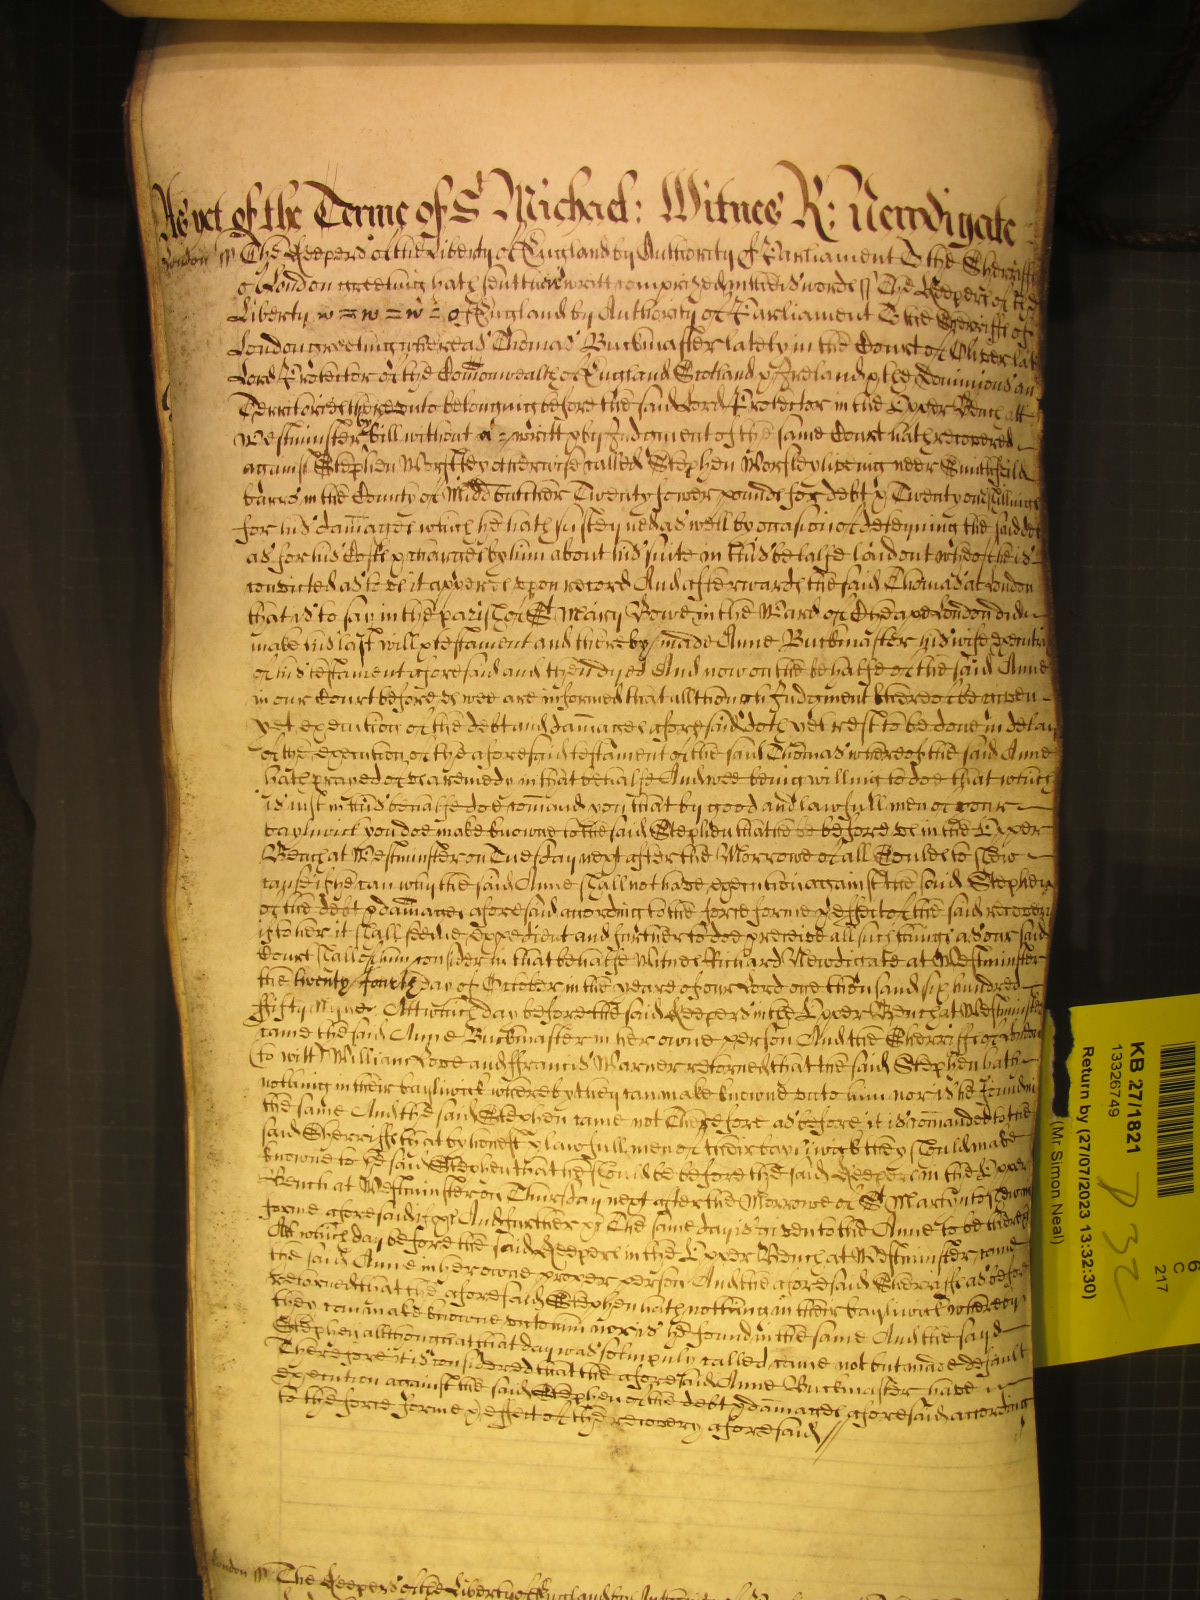 As yet of the Terme of St Michael: Witnes R: Newdigate
London ss The Keepers of the Liberty of England by Authority of Parliament To the Sherriffs
of London greeting hath sent their writt comprized in theis words ss The Keepers of the
Liberty of England by Authority of Parliament To the Sherriffs of
London greeting whereas Thomas Buckmaster lately in the Court of Oliver late
Lord Protector of the Comonwealth of England Scotland & Ireland & the Dominions and
Territories thereunto belonging before the said Lord Protector in the Upper Bench att
Westminster by bill without writt & by Judgment of the same Court hath recovered
against Stephen Worsley otherwise called Stephen Worsley liveing neer Smithfeild
barrs in the County of Midd butcher Twenty fower pounds for debt & Twenty one shillings
for his damages which he hath susteyned as well by occasion of deteyning the said debt
as for his Costs & charges by him about his suite in this behalfe laid out whereof he is
convicted as to us it appeares upon record And afterwards the said Thomas at London
that is to say in the parish of St Mary Bowe in the Ward of Cheape London did
make his last will & testament and thereby made Anne Buckmaster his wife executrix
of his testament aforesaid and then dyed And now on the behalfe of the said Anne
in our Court before us wee are informed that although Judgment thereof be given
yet execution of the debt and damages aforesaid doth yet rest to be done in delay
of the execution of the aforesaid testament of the said Thomas whereof the said Anne
hath prayed of us a remedy in that behalfe And wee being willing to doe that which
is just in this behalfe doe comand you that by good and lawfull men of your
baylwick you doe make knowne to the said Stephen that he be before us in the Upper
Bench at Westminster on Tuesday next after the Morrowe of All Soules to shew
cause if he can why the said Anne shall not have execution against the said Stephen
of the debt & damages aforesaid according to the force forme & effect of the said recovery
if to her it shall seeme expedient and further to doe & receive all such things as our said
Court shall of him consider in that behalfe Witnes Richard Newdigate at Westminster
the twenty fourth day of October in the yeare of our Lord one thousand six hundred
fifty nyne. Att which day before the said Keepers in the Upper Bench at Westminster
came the said Anne Buckmaster in her owne person And the Sherriffs of London
(to witt) William Love and ffrancis Warner retorned that the said Stephen hath
nothing in their baylwick whereby they can make knowne unto him nor is he found in
the same And the said Stephen came not Therefore as before it is comanded to the
said Sherriffs that by honest & lawfull men of their baylwick they should make
knowne to the said Stephen that he should be before the said Keepers in the Upper
Bench at Westminster on Thursday next after the Morrowe of St Martyn to shew in
forme aforesaid if &c And further &c The same day is given to the Anne to be there &c
At which day before the said Keepers in the Upper Bench at Westminster came
the said Anne in her owne proper person And the aforesaid Sherriffs as before
retorned that the aforesaid Stephen hath nothing in their baylwick whereby
they can make knowne unto him nor is he found in the same And the said
Stephen although that day was solempnly called came not but made default
Therefore it is considered that the aforesaid Anne Buckmaster have
execution against the said Stephen of the debt & damages aforesaid according
to the force forme & effect of the recovery aforesaid //
London ss The Keepers of the Liberty of England by
KB 27/1821
13326749
Return by (27/07/2023 13:32:30)
(Mr. Simon Neal)
C
217
P 32